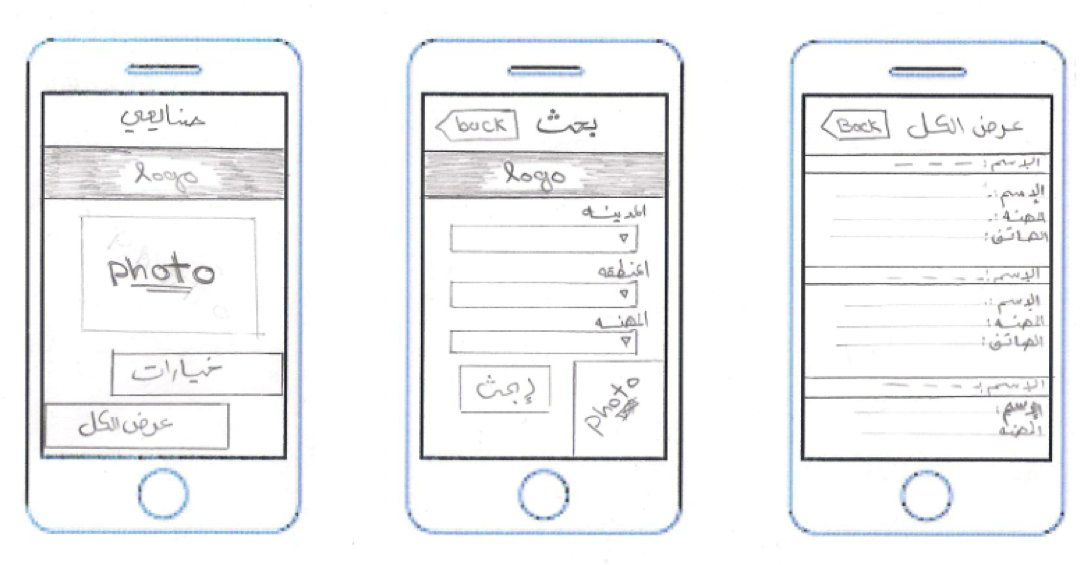 صنايعي
logo
photo
خيارات
عرض الكل
back بحث
logo
المدينه
المنطقه
المهنه
إبحث
photo
Back عرض الكل
الإسم:
الإسم:
المهنه:
الهاتف:
الإسم:
الإسم:
المهنه:
الهاتف:
الإسم:
الإسم:
المهنه